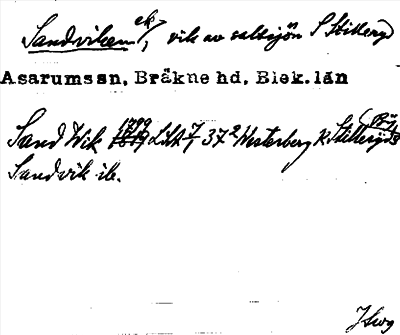 Sandviken ek /, vik av saltsjön S Stilleryd
Asarums sn, Bräkne hd, Blek. län
Sand Wik 1799 LSA 7/1 37² Westerberg K Stilleryds
Sandvik ib.